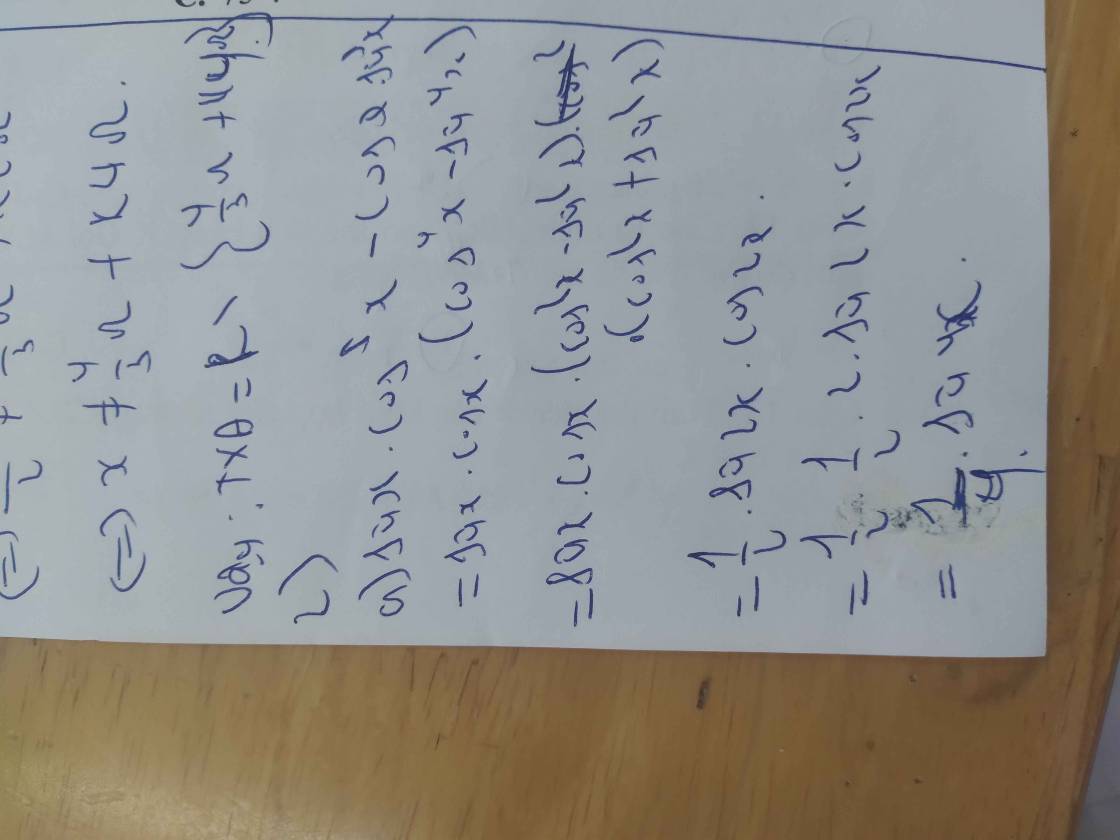 ⇔ x ≠ 4/3 π + k4π.
Vậy: TXĐ = R \ {4/3 π + k4π}
2)
a) sin x . cos⁵ x − cos x sin⁵ x
= sin x . cos x . (cos⁴ x − sin⁴ x)
= sin x . cos x . (cos² x − sin² x).
.(cos² x + sin² x)
= 1/2 . sin 2x . cos 2x .
= 1/2 . 1/2 . 2 . sin 2x . cos 2x
= 1/4 . sin 4x .